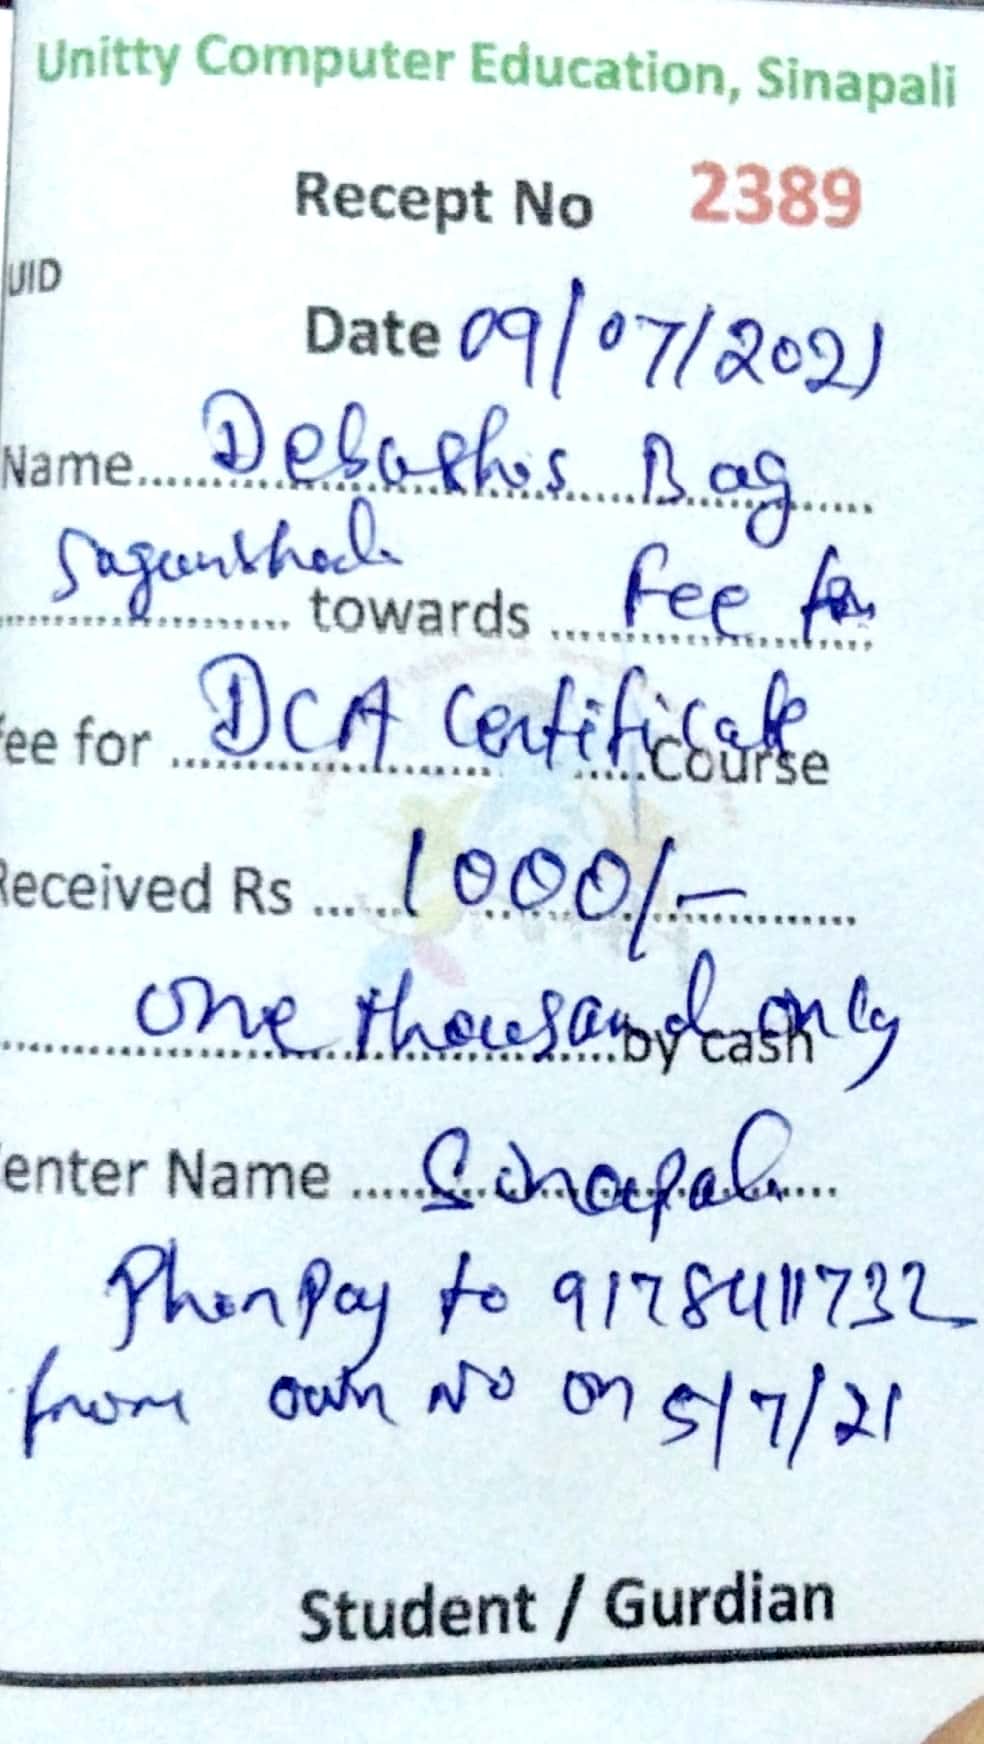 Unitty Computer Education, Sinapali
Recept No 2389
UID
Date 09/07/2021
Name.....Debashis Bag.....
..... towards ..... Fee for
ee for ..... DCA Certificate .....Course
Received Rs ..... 1000/- .....
..... one thousand only .....by cash
enter Name ..... Sinapali .....
PhonPay to 9178411732
from own No on 5/7/21
Student / Gurdian